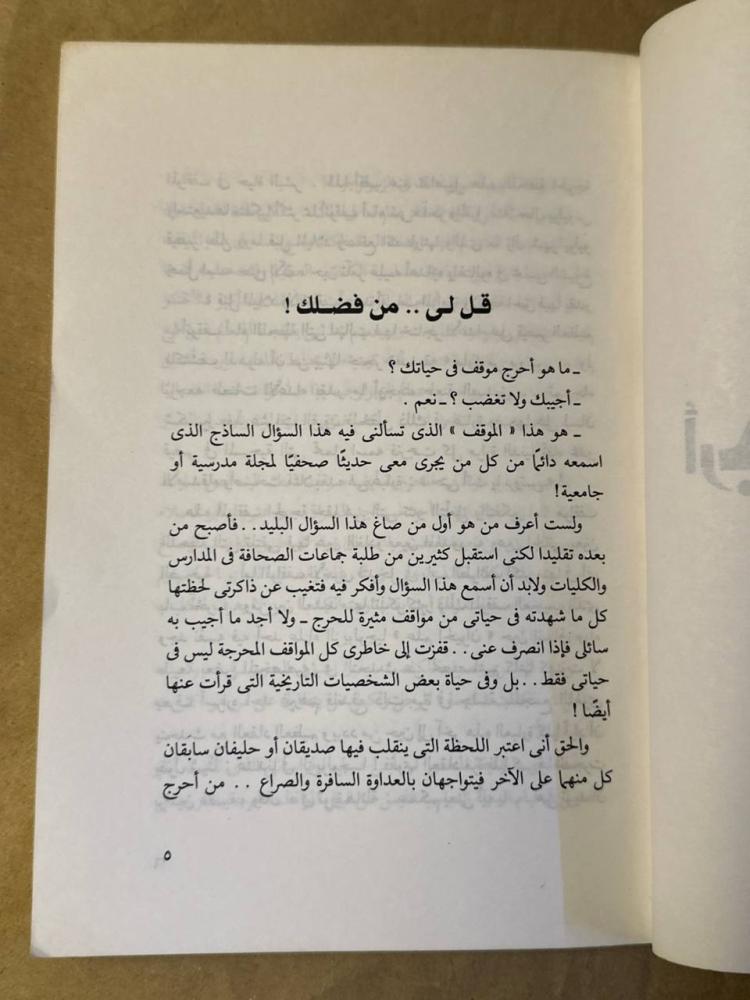 قل لى .. من فضلك !
ـ ما هو أحرج موقف فى حياتك ؟
ـ أجيبك ولا تغضب ؟ ـ نعم .
ـ هو هذا « الموقف » الذى تسألنى فيه هذا السؤال الساذج الذى
اسمعه دائمًا من كل من يجرى معى حديثًا صحفيًا لمجلة مدرسية أو
جامعية!
ولست أعرف من هو أول من صاغ هذا السؤال البليد . . فأصبح من
بعده تقليدا لكنى استقبل كثيرين من طلبة جماعات الصحافة فى المدارس
والكليات ولابد أن أسمع هذا السؤال وأفكر فيه فتغيب عن ذاكرتى لحظتها
كل ما شهدته فى حياتى من مواقف مثيرة للحرج ـ ولا أجد ما أجيب به
سائلى فإذا انصرف عنى . . قفزت إلى خاطرى كل المواقف المحرجة ليس فى
حياتى فقط . . بل وفى حياة بعض الشخصيات التاريخية التى قرأت عنها
أيضًا !
والحق أنى اعتبر اللحظة التى ينقلب فيها صديقان أو حليفان سابقان
كل منهما على الآخر فيتواجهان بالعداوة السافرة والصراع . . من أحرج
٥